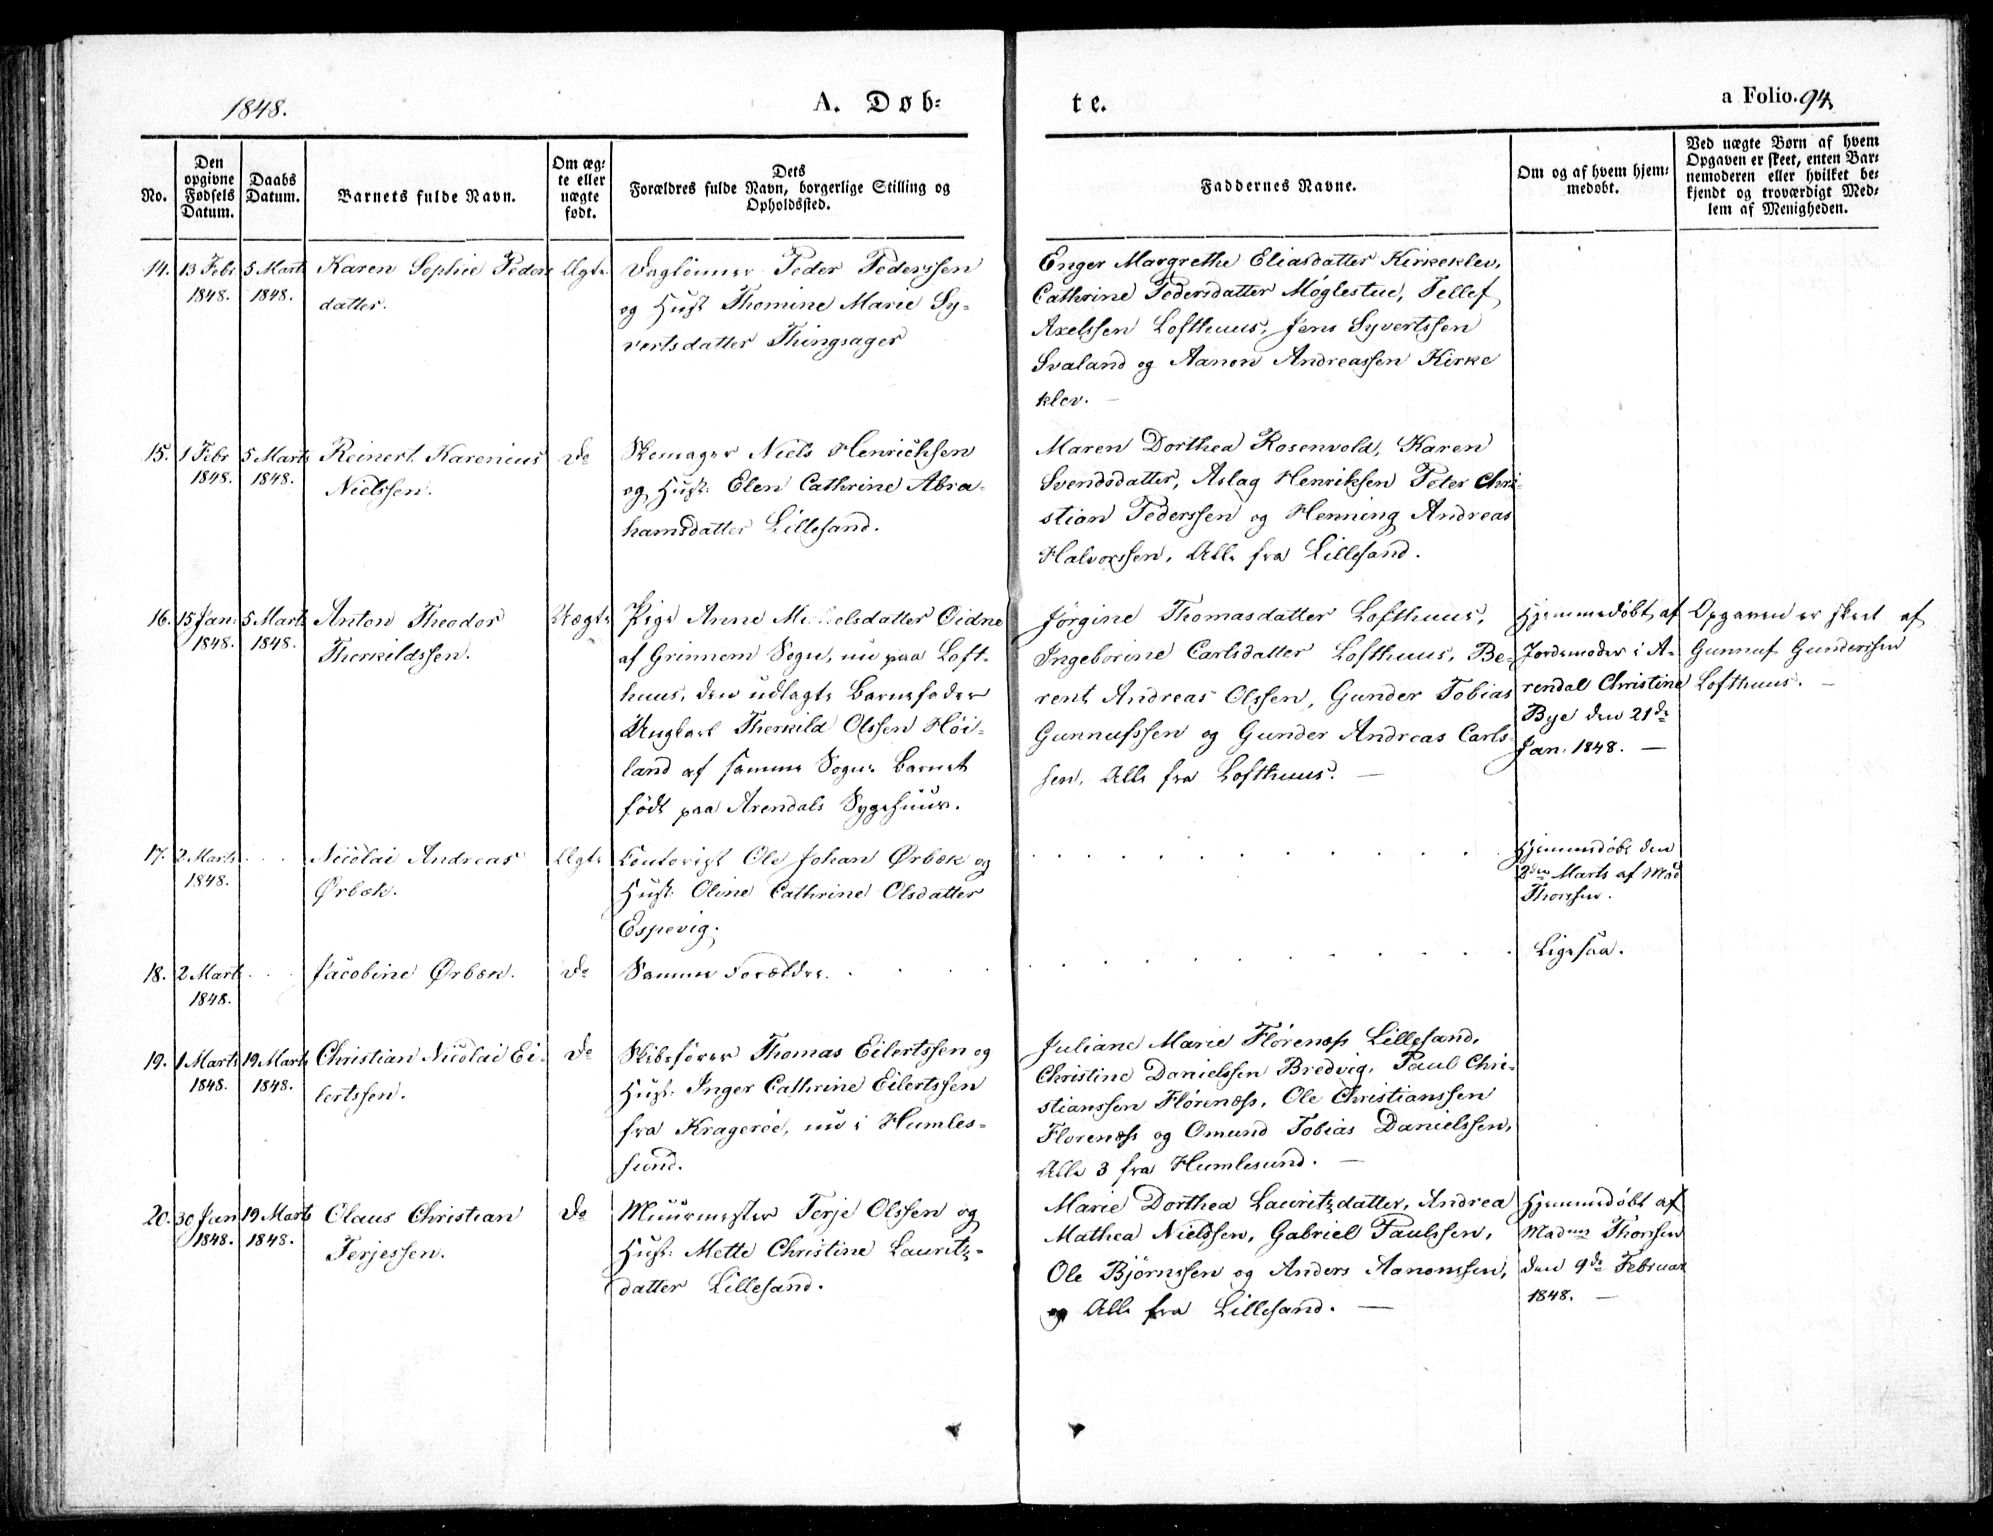 1848.
A. Døb-
te.
a Folio. 94.
No.
Den opgivne Fødsels Datum.
Daabs Datum.
Barnets fulde Navn.
Om ægte eller uægte født.
Dets Forældres fulde Navn, borgerlige Stilling og Opholdssted.
Faddernes Navne.
Om og af hvem hjemmedøbt.
Ved uægte Børn af hvem Opgaven er skeet, enten Barnemoderen eller hvilket bekjendt og troværdigt Medlem af Menigheden.
14. 13 Febr 1848. 5 Marts 1848.
Karen Sophie Peders
datter.
Ægte
Daglønner Peder Pederssen
og Hust Thomine Marie Sy-
vertsdatter Thingsager
Enger Margrethe Eliasdatter Kirkeklev,
Cathrine Pedersdatter Møglestue, Tellef
Axelssen Lofthuus, Jens Syvertssen
Svaland og Aanon Andreassen Kirke
klev. —
15. 1 Febr 1848. 5 Marts 1848.
Reinert Karenius
Nielssen.
Do
Skomager Niels Henrichsen
og Hust: Elen Cathrine Abra-
hamsdatter Lillesand.
Maren Dorthea Rosenvold, Karen
Svendsdatter, Aslag Henriksen Peter Chri-
stian Pederssen og Henning Andreas
Halvorssen, Alle fra Lillesand.
16. 15 Jan: 1848. 5 Marts 1848.
Anton Theodor
Therkildssen.
Uægte
Pige Anne Mi elsdatter Eidne
af Grinnem Sogn, nu paa Loft-
huus, den udlagte Barnefader
Ungkarl Therkild Olssen Høi-
land af samme Sogn. Barnet
født paa Arendals Sygehuus.
Jørgine Thomasdatter Lofthuus,
Ingeborine Carlsdatter Lofthuus, Be-
rent Andreas Olssen, Gunder Tobias
Gunnufssen og Gunder Andreas Carls-
sen, Alle fra Lofthuus. —
Hjemmedøbt af
Jordemoder i A-
rendal Christine
Bye den 21de
Jan. 1848. —
Opgaven er skeet af
Gunnuf Gunderssen
Lofthuus. —
17. 2 Marts 1848. . . .
Nicolai Andreas
Ørbæk.
Ægte
Contorist Ole Johan Ørbæk og
Hust: Oline Cathrine Olsdatter
Espevig.
Hjemmedøbt den
2den Marts af Mad
Thorssen.
18. 2 Marts 1848. . . .
Jacobine Ørbæk.
Do
Samme Forældre.
Ligesaa.
19. 1 Marts 1848. 19 Marts 1848.
Christian Nicolai Ei-
lertssen.
Do
Skibsfører Thomas Eilertssen og
Hust: Inger Cathrine Eilertssen
fra Kragerøe, nu i Humles-
sund.
Juliane Marie Flørenæss Lillesand,
Christine Danielssen Bredvig, Paul Chri-
stianssen Flørenæss, Ole Christianssen
Florenæss og Omund Tobias Danielssen,
Alle 3 fra Humlesund. —
20. 30 Jan 1848. 19 Marts 1848.
Claus Christian
Terjessen.
Do
Muurmester Terje Olssen og
Hust: Mette Christine Lauritz-
datter Lillesand.
Marie Dorthea Lauritzdatter, Andrea
Mathea Nielssen, Gabriel Paulssen,
Ole Bjørnssen og Anders Aanonssen,
og Alle fra Lillesand. —
Hjemmedøbt af
Madme Thorssen
den 9de Februar
1848. —